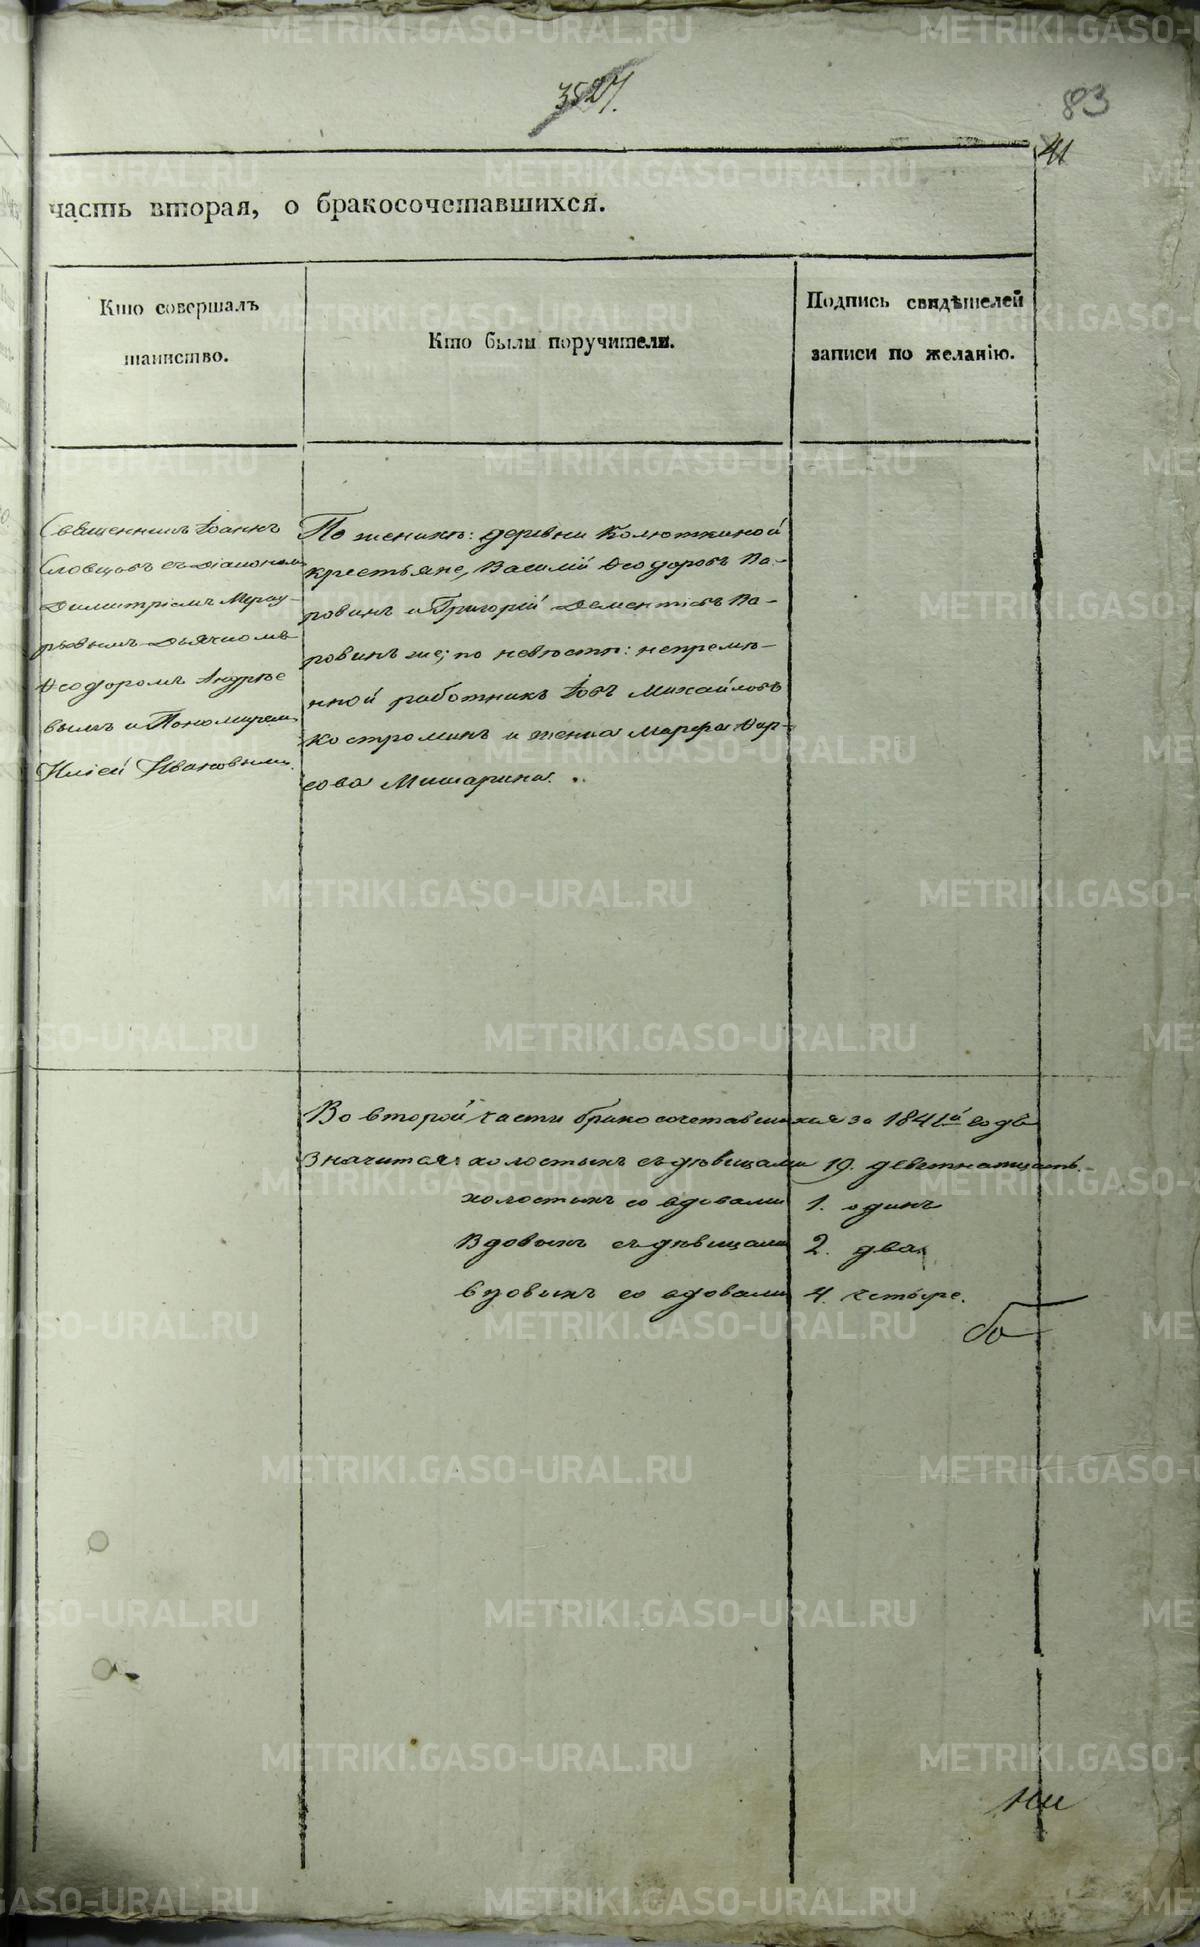 3527.
83
41
часть вторая, о бракосочетавшихся.
Кто совершалъ
таинство.
Кто были поручители.
Подпись свидѣтелей
записи по желанію.
Священникъ Іоаннъ
Словцовъ съ діакономъ
Димитріемъ Мерку-
рьевымъ дьячкомъ
Ѳеодоромъ Андрѣе
вымъ и Пономаремъ
Иліей Ивановымъ.
По женихѣ: деревни Колюткиной
крестьяне, Василій Ѳеодоровъ Па-
ровинъ и Григорій Дементіевъ Па-
ровинъ же; по невѣстѣ: непремѣ-
нной работникъ Іовъ Михайловъ
Костроминъ и женка Марфа Фир-
сова Мишарина.
Во второй части бракосочетавшихся за 1841й годъ
Значится: холостыхъ съ дѣвицами 19. девятнатцать.
холостыхъ со вдовами 1. одинъ
Вдовыхъ съ дѣвицами 2. два.
вдовыхъ со вдовами 4. четыре.
METRIKI.GASO-URAL.RU